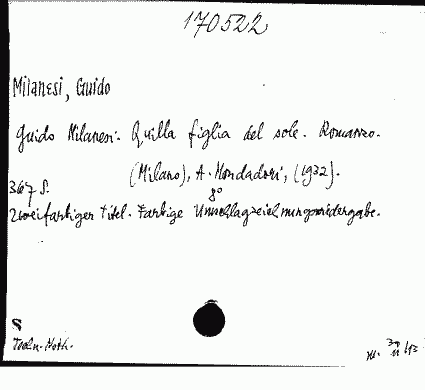 170522
Milanesi, Guido
Guido Milanesi. Quilla figlia del sole. Romanzo.
(Milano), A. Mondadori, (1932).
367 S. 8°
Zweifarbiger Titel. Farbige Umschlagzeichnungswiedergabe.
S